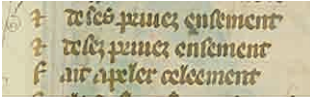 ⁊ de ses priuez ensement
⁊ de sez priuez ensement
F ait apeler celeement